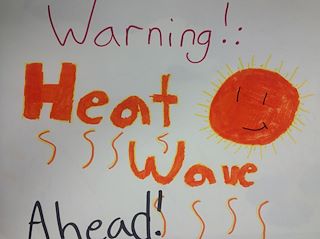 Warning!:
Heat
Wave
Ahead!